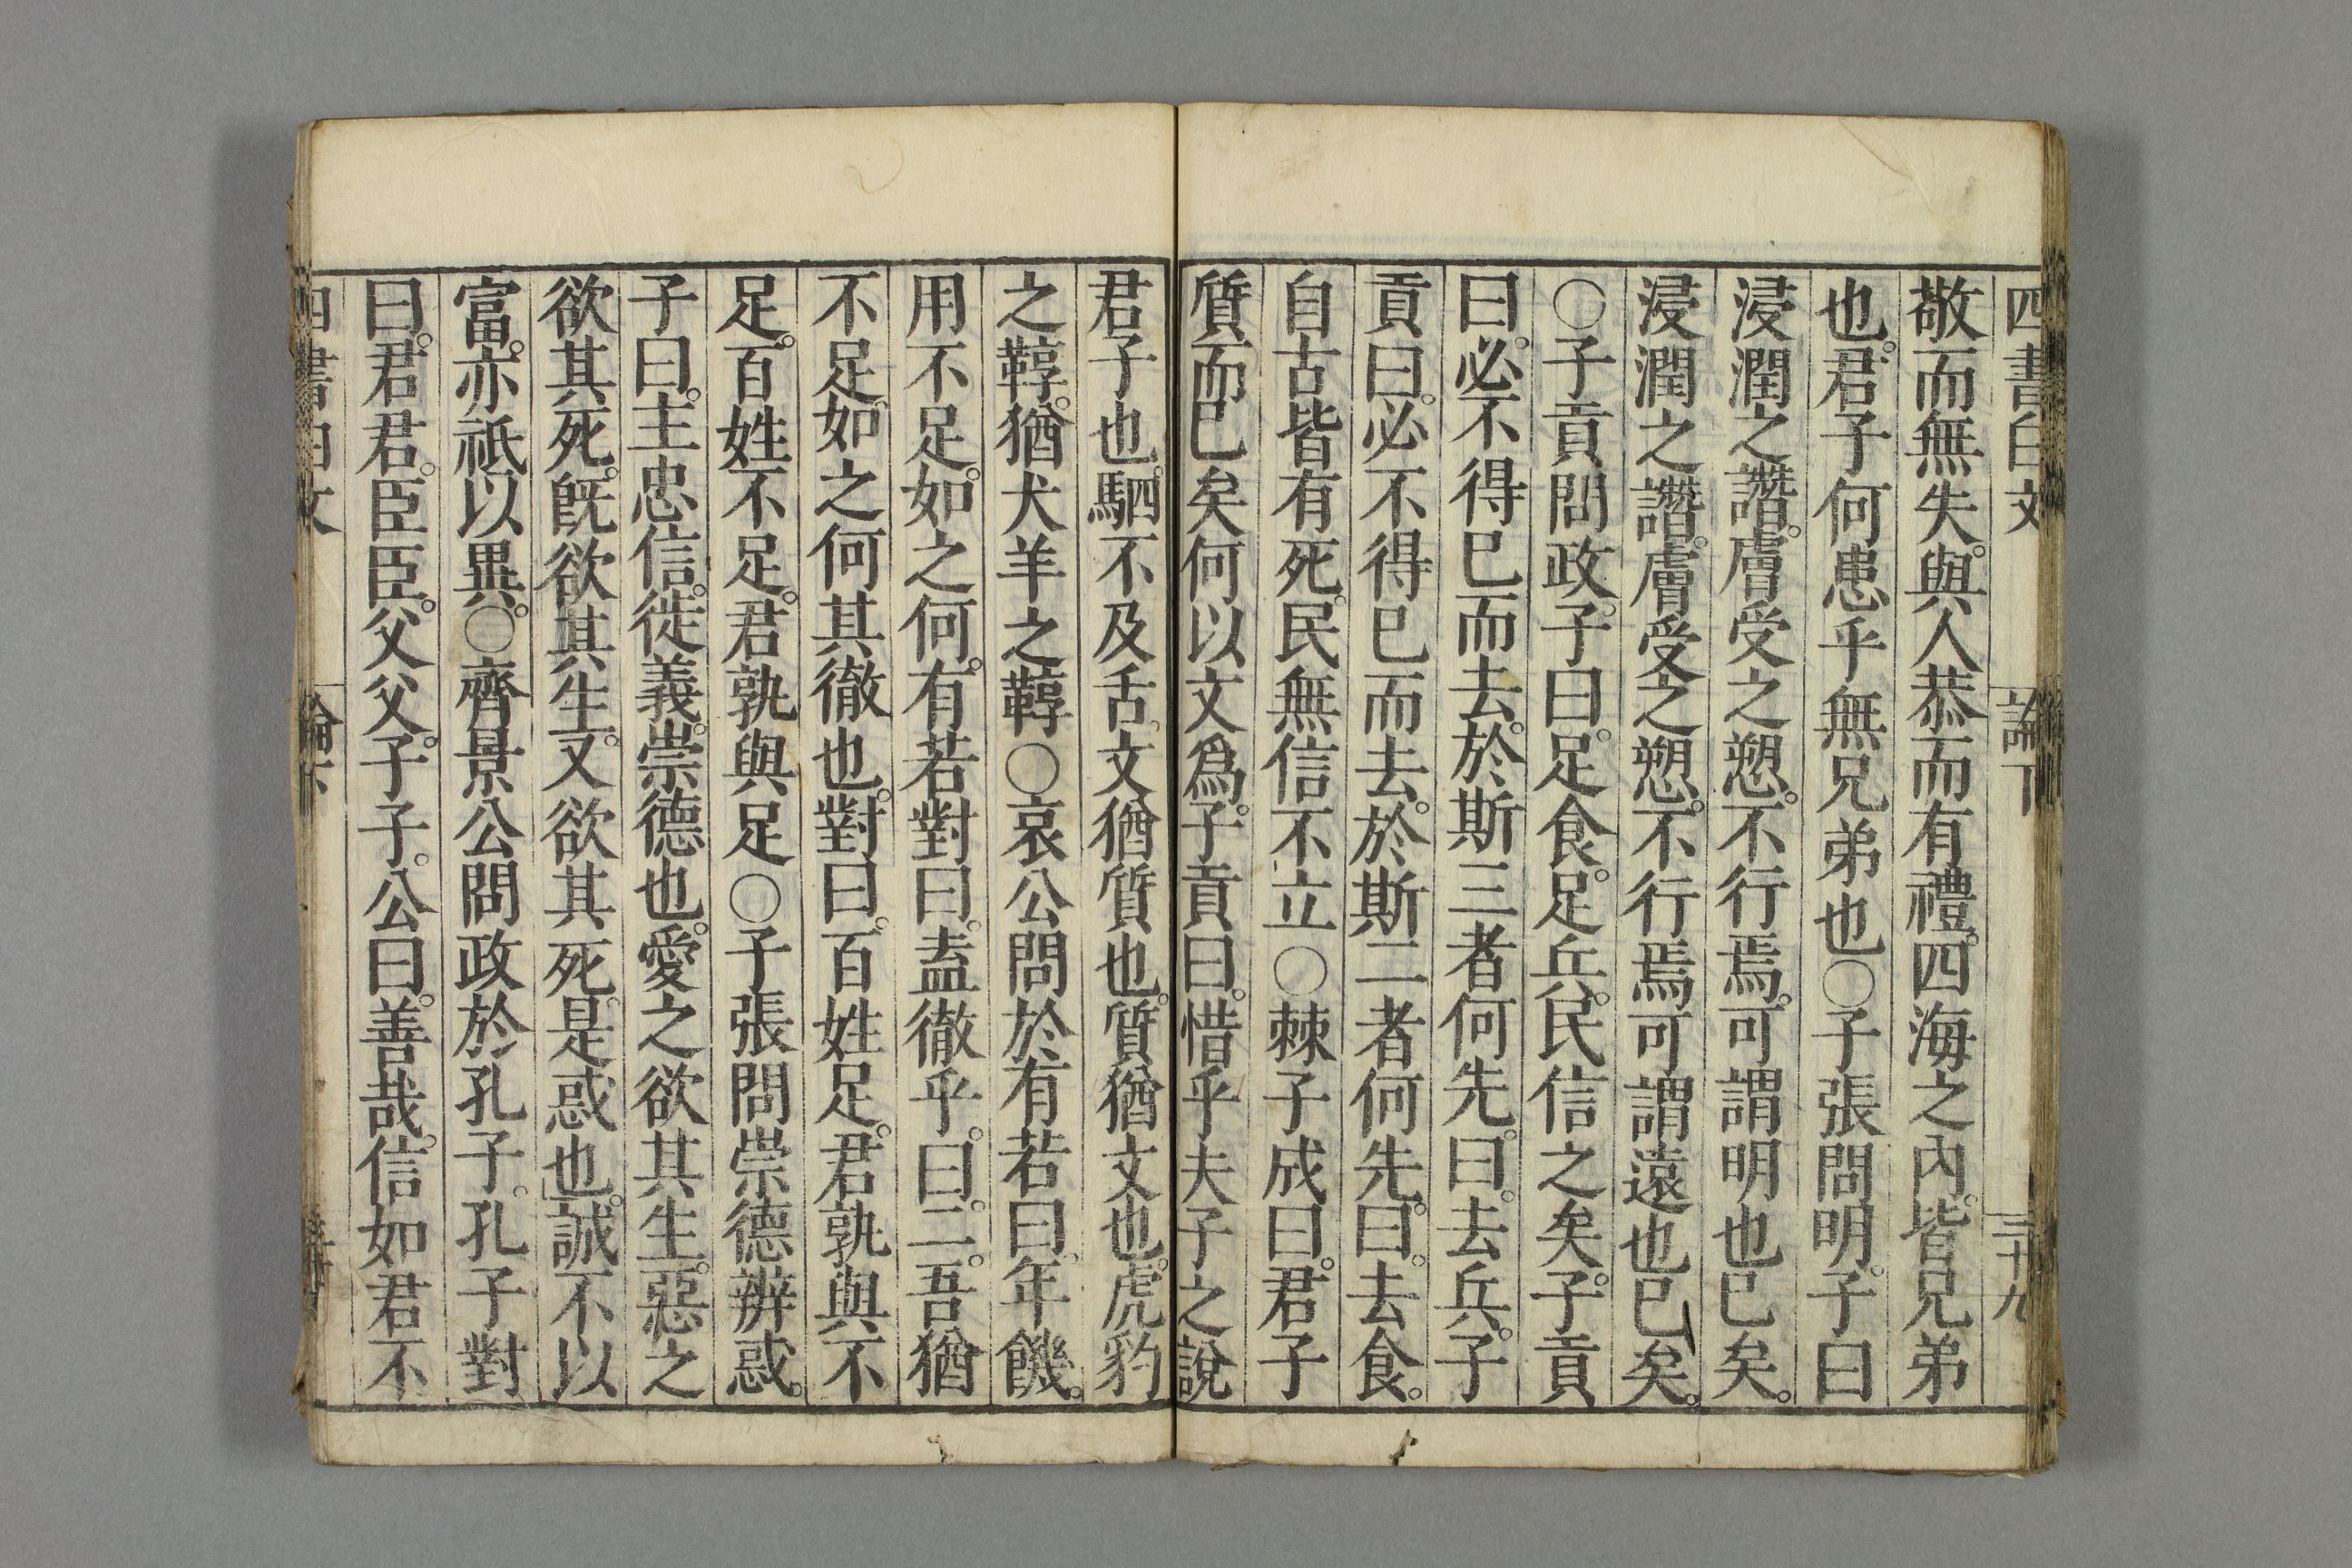 四書白文 論下 三十九
敬而無失。與人恭而有禮。四海之內。皆兄弟
也。君子何患乎無兄弟也○子張問明。子曰
浸潤之譖。膚受之愬。不行焉。可謂明也已矣。
浸潤之譖。膚受之愬。不行焉可謂遠也已矣。
○子貢問政。子曰。足食。足兵。民信之矣。子貢
曰。必不得已而去。於斯三者何先。曰。去兵。子
貢曰。必不得已而去。於斯二者何先。曰。去食。
自古皆有死。民無信不立○棘子成曰。君子
質而已矣何以文爲。子貢曰。惜乎夫子之說
君子也。駟不及舌。文猶質也。質猶文也。虎豹
之鞟。猶犬羊之鞟○哀公問於有若曰。年饑。
用不足。如之何。有若對曰。盍徹乎。曰。二。吾猶
不足。如之何其徹也。對曰。百姓足。君孰與不
足。百姓不足。君孰與足○子張問崇德辨惑。
子曰。主忠信。徙義。崇德也。愛之欲其生。惡之
欲其死。旣欲其生。又欲其死。是惑也。誠不以
富。亦祇以異。○齊景公問政於孔子。孔子對
曰。君君。臣臣。父父。子子。公曰。善哉。信如君不
四書白文 論下